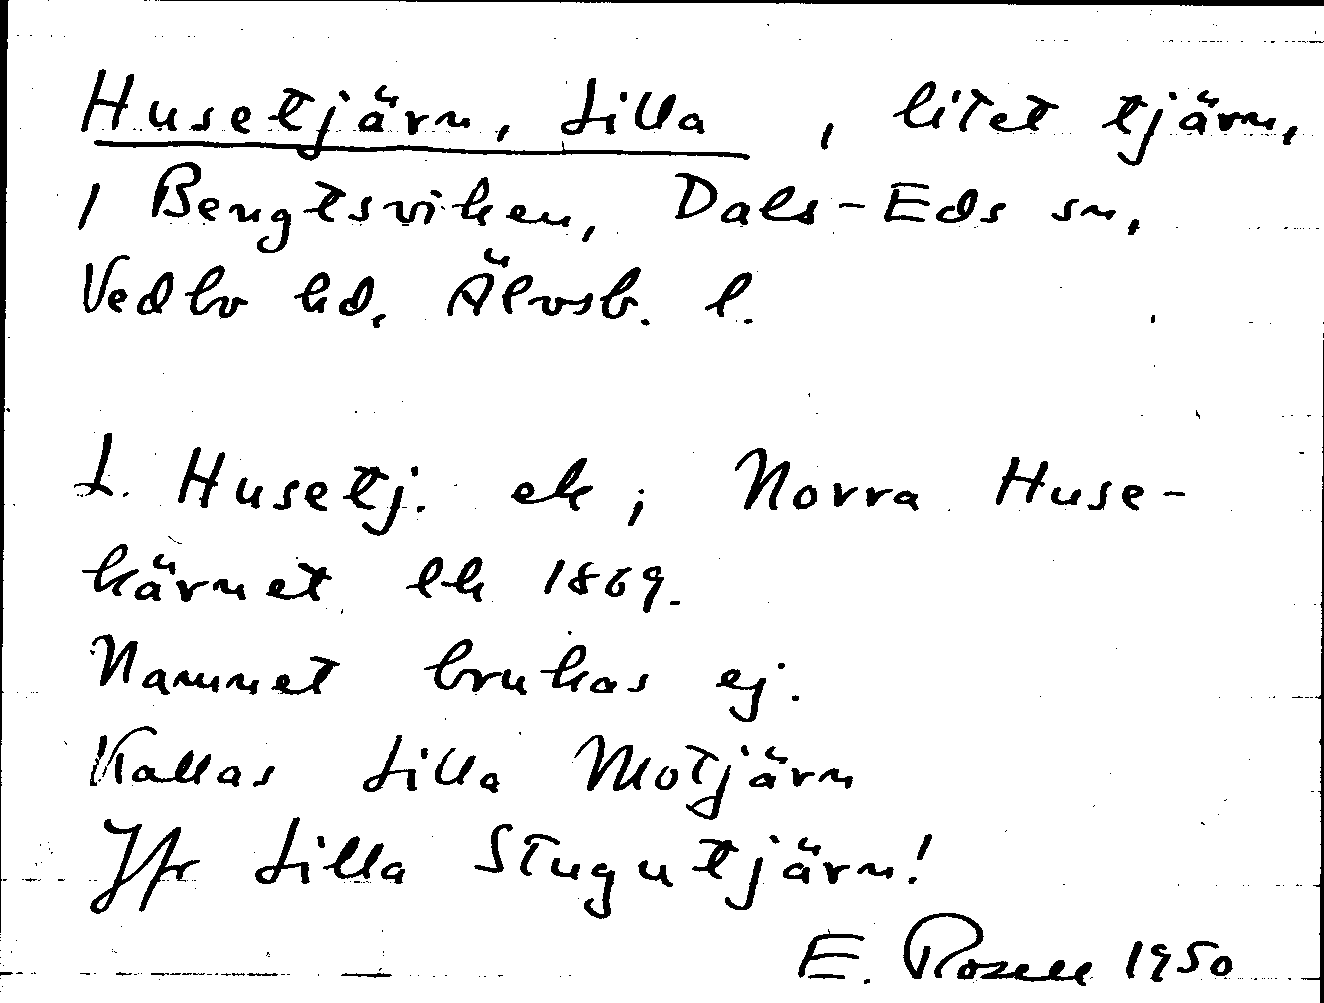 Husetjärn, Lilla, litet tjärn,
i Bengtsviken, Dals-Eds sn,
Vedbo hd, Älvsb. l.
L. Husetj. ek; Norra Huse-
kärnet lk 1869.
Namnet brukas ej.
Kallas Lilla Motjärn
Jfr Lilla Stugutjärn!
E. Rosell 1950